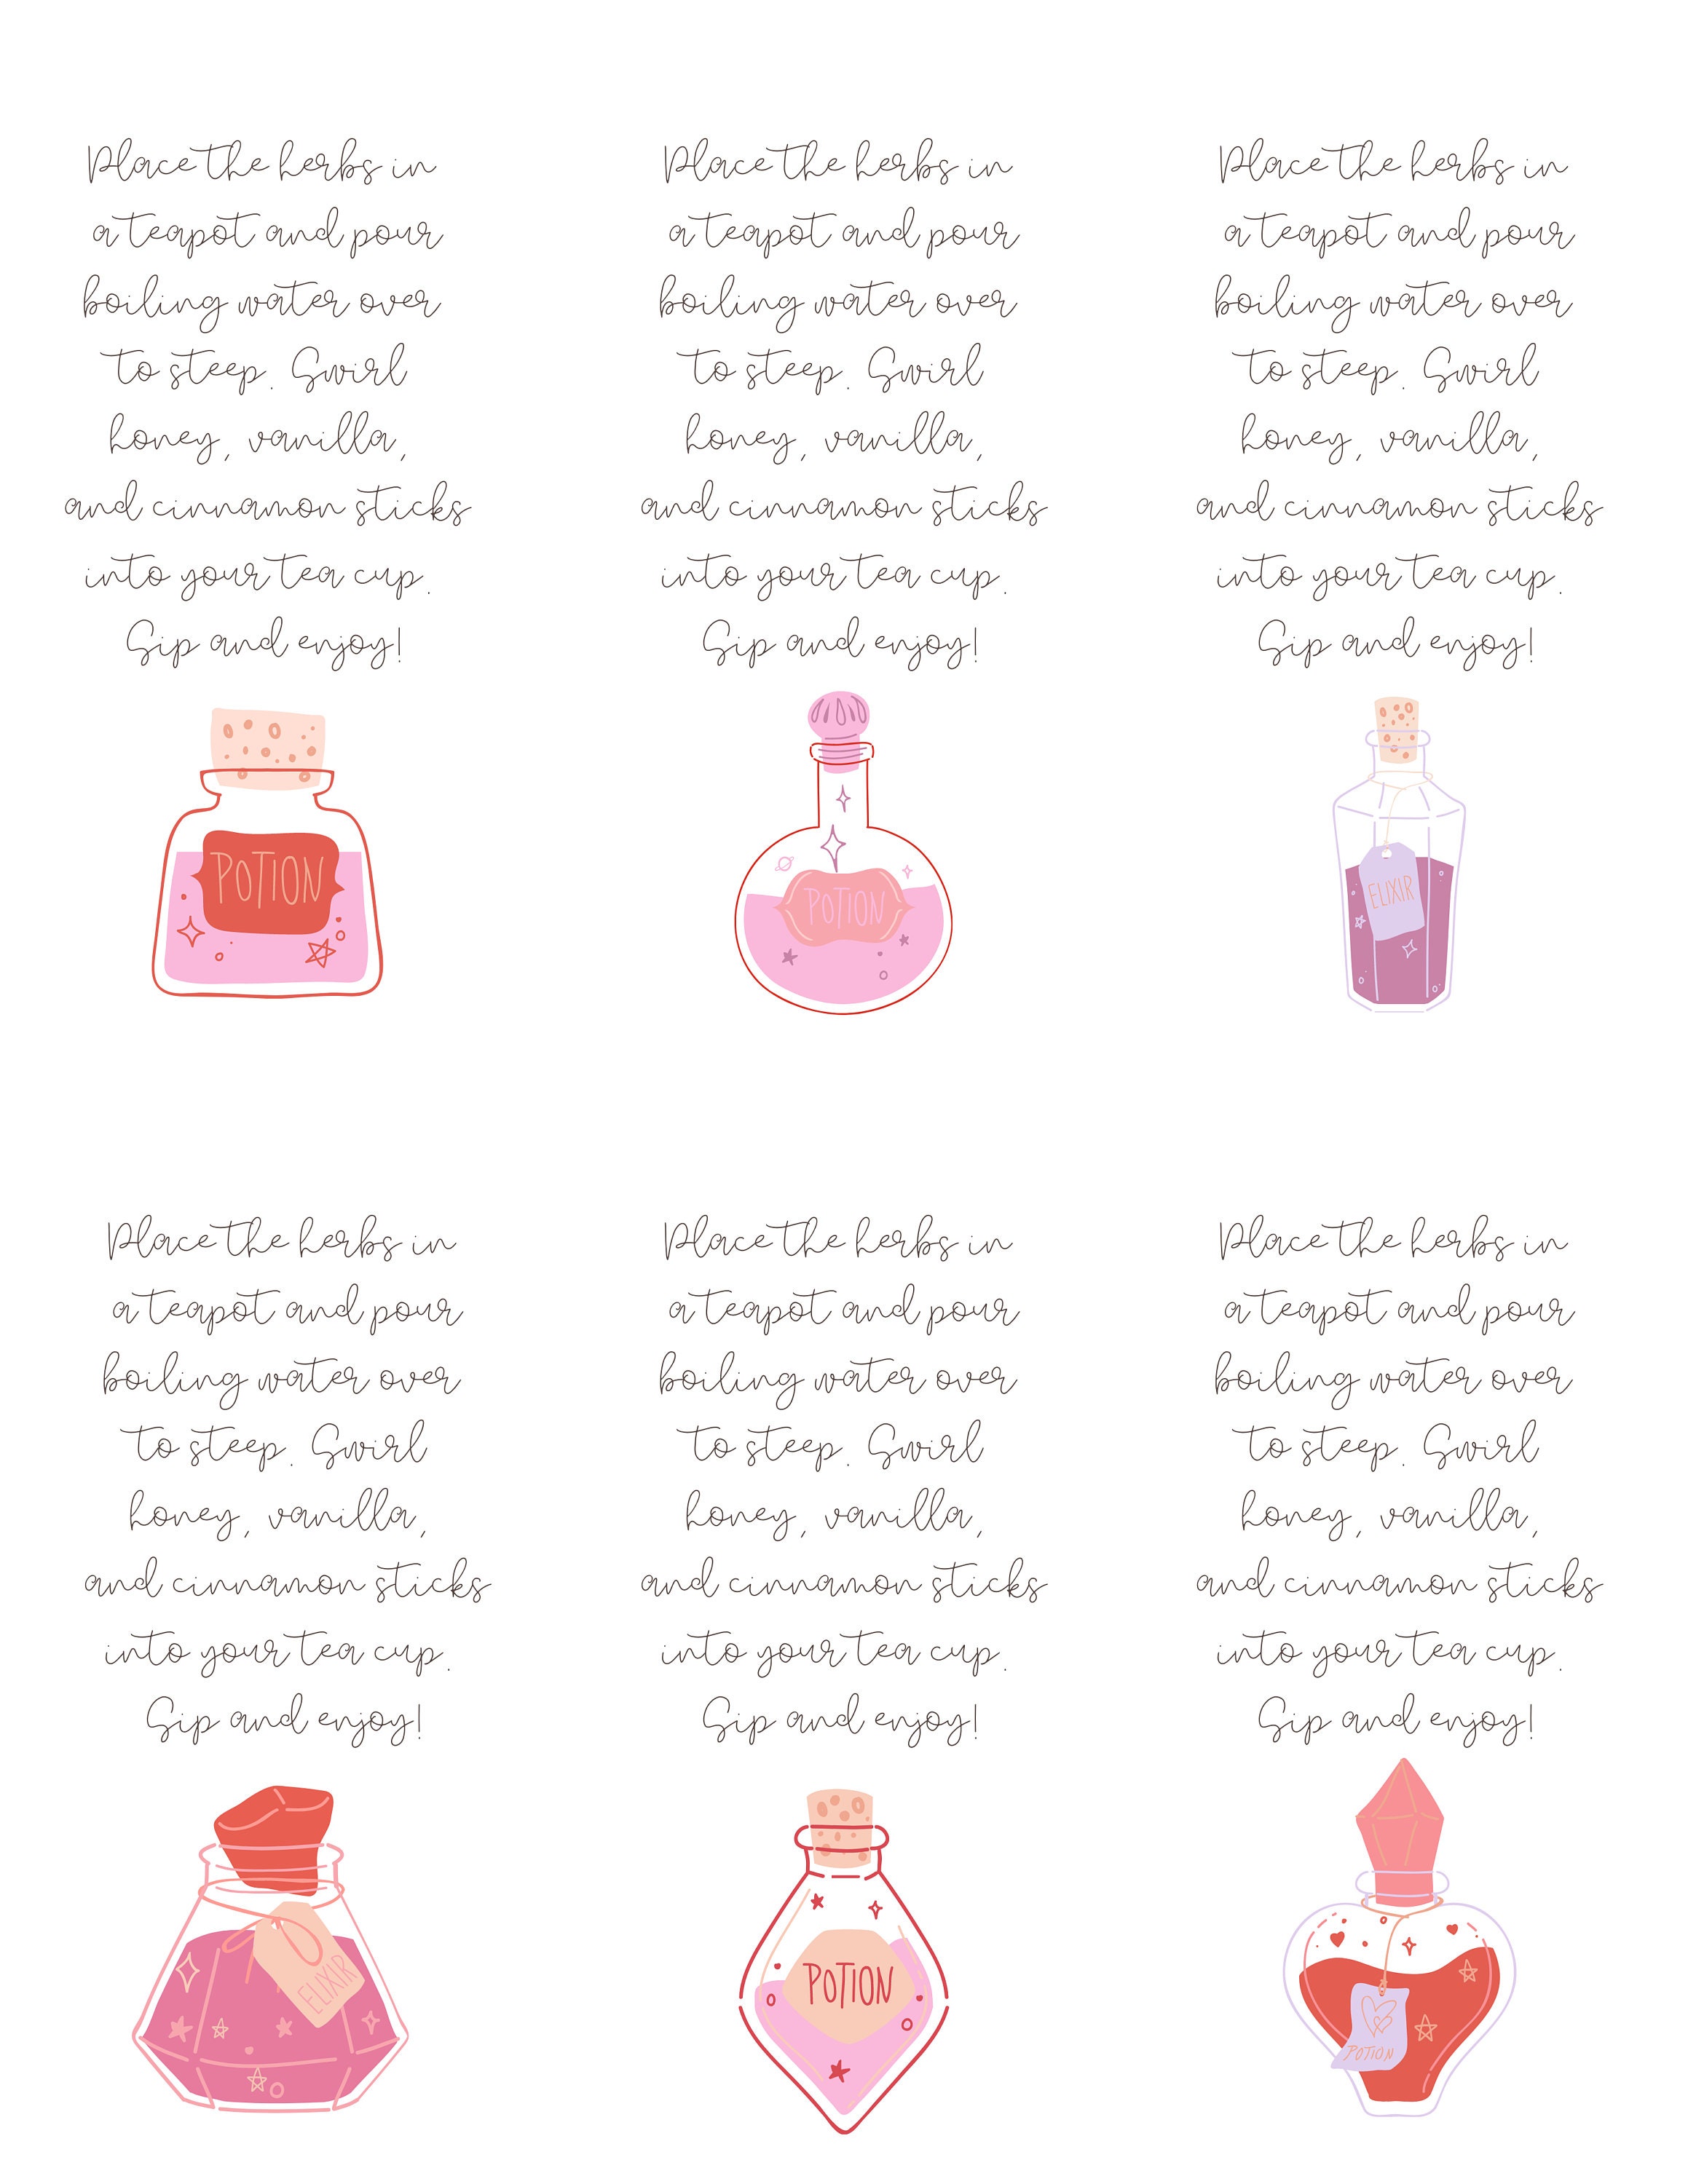 Place the herbs in
a teapot and pour
boiling water over
to steep. Swirl
honey, vanilla,
and cinnamon sticks
into your tea cup.
Sip and enjoy!
POTION
Place the herbs in
a teapot and pour
boiling water over
to steep. Swirl
honey, vanilla,
and cinnamon sticks
into your tea cup.
Sip and enjoy!
POTION
Place the herbs in
a teapot and pour
boiling water over
to steep. Swirl
honey, vanilla,
and cinnamon sticks
into your tea cup.
Sip and enjoy!
ELIXIR
Place the herbs in
a teapot and pour
boiling water over
to steep. Swirl
honey, vanilla,
and cinnamon sticks
into your tea cup.
Sip and enjoy!
ELIXIR
Place the herbs in
a teapot and pour
boiling water over
to steep. Swirl
honey, vanilla,
and cinnamon sticks
into your tea cup.
Sip and enjoy!
POTION
Place the herbs in
a teapot and pour
boiling water over
to steep. Swirl
honey, vanilla,
and cinnamon sticks
into your tea cup.
Sip and enjoy!
POTION